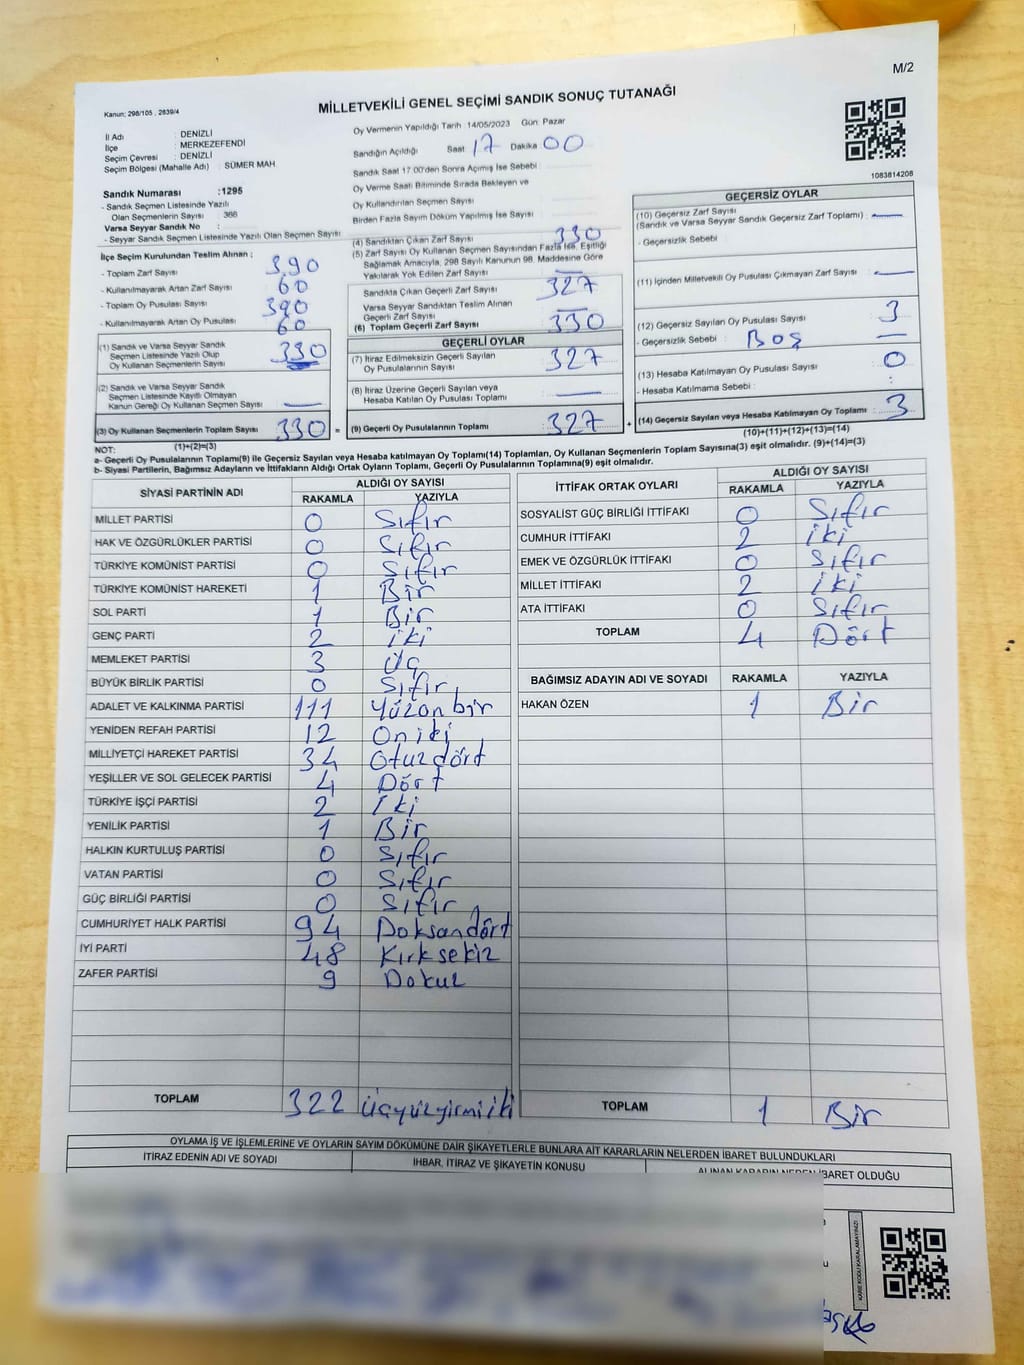 M/2
Kanun; 298/105 , 2839/4
MİLLETVEKİLİ GENEL SEÇİMİ SANDIK SONUÇ TUTANAĞI
İl Adı : DENİZLİ
İlçe : MERKEZEFENDİ
Seçim Çevresi : DENİZLİ
Seçim Bölgesi (Mahalle Adı) : SÜMER MAH.
Sandık Numarası :1295
- Sandık Seçmen Listesinde Yazılı
Olan Seçmenlerin Sayısı : 366
Varsa Seyyar Sandık No :
- Seyyar Sandık Seçmen Listesinde Yazılı Olan Seçmen Sayısı
İlçe Seçim Kurulundan Teslim Alınan ;
- Toplam Zarf Sayısı 390
- Kullanılmayarak Artan Zarf Sayısı 60
- Toplam Oy Pusulası Sayısı 390
- Kullanılmayarak Artan Oy Pusulası 60
(1) Sandık ve Varsa Seyyar Sandık
Seçmen Listesinde Yazılı Olup
Oy Kullanan Seçmenlerin Sayısı 330
(2) Sandık ve Varsa Seyyar Sandık
Seçmen Listesinde Kayıtlı Olmayan
Kanun Gereği Oy Kullanan Seçmen Sayısı —
(3) Oy Kullanan Seçmenlerin Toplam Sayısı 330 =
Oy Vermenin Yapıldığı Tarih 14/05/2023 Gün: Pazar
Sandığın Açıldığı Saat 17 Dakika 00
Sandık Saat 17.00'den Sonra Açımış İse Sebebi :
Oy Verme Saati Bitiminde Sırada Bekleyen ve
Oy Kullandırılan Seçmen Sayısı
Birden Fazla Sayım Döküm Yapılmış İse Sayısı :
(4) Sandıktan Çıkan Zarf Sayısı 330
(5) Zarf Sayısı Oy Kullanan Seçmen Sayısından Fazla İse, Eşitliği
Sağlamak Amacıyla, 298 Sayılı Kanunun 98. Maddesine Göre
Yakılarak Yok Edilen Zarf Sayısı —
Sandıkta Çıkan Geçerli Zarf Sayısı 327
Varsa Seyyar Sandıktan Teslim Alınan
Geçerli Zarf Sayısı —
(6) Toplam Geçerli Zarf Sayısı 330
GEÇERLİ OYLAR
(7) İtiraz Edilmeksizin Geçerli Sayılan
Oy Pusulalarının Sayısı 327
(8) İtiraz Üzerine Geçerli Sayılan veya
Hesaba Katılan Oy Pusulası Toplamı —
(9) Geçerli Oy Pusulalarının Toplamı 327 +
1083814208
GEÇERSİZ OYLAR
(10) Geçersiz Zarf Sayısı
(Sandık ve Varsa Seyyar Sandık Geçersiz Zarf Toplamı) : —
- Geçersizlik Sebebi
(11) İçinden Milletvekili Oy Pusulası Çıkmayan Zarf Sayısı : —
(12) Geçersiz Sayılan Oy Pusulası Sayısı : 3
- Geçersizlik Sebebi : Boş —
(13) Hesaba Katılmayan Oy Pusulası Sayısı 0
- Hesaba Katılmama Sebebi :
(14) Geçersiz Sayılan veya Hesaba Katılmayan Oy Toplamı 3
NOT: (1)+(2)=(3) (10)+(11)+(12)+(13)=(14)
a- Geçerli Oy Pusulalarının Toplamı(9) ile Geçersiz Sayılan veya Hesaba katılmayan Oy Toplamı(14) Toplamları, Oy Kullanan Seçmenlerin Toplam Sayısına(3) eşit olmalıdır. (9)+(14)=(3)
b- Siyasi Partilerin, Bağımsız Adayların ve İttifakların Aldığı Ortak Oyların Toplamı, Geçerli Oy Pusulalarının Toplamına(9) eşit olmalıdır.
SİYASİ PARTİNİN ADI ALDIĞI OY SAYISI
RAKAMLA YAZIYLA
MİLLET PARTİSİ 0 Sıfır
HAK VE ÖZGÜRLÜKLER PARTİSİ 0 Sıfır
TÜRKİYE KOMÜNİST PARTİSİ 0 Sıfır
TÜRKİYE KOMÜNİST HAREKETİ 1 Bir
SOL PARTİ 1 Bir
GENÇ PARTİ 2 iki
MEMLEKET PARTİSİ 3 üç
BÜYÜK BİRLİK PARTİSİ 0 Sıfır
ADALET VE KALKINMA PARTİSİ 111 Yüzonbir
YENİDEN REFAH PARTİSİ 12 Oniki
MİLLİYETÇİ HAREKET PARTİSİ 34 Otuzdört
YEŞİLLER VE SOL GELECEK PARTİSİ 4 Dört
TÜRKİYE İŞÇİ PARTİSİ 2 İki
YENİLİK PARTİSİ 1 Bir
HALKIN KURTULUŞ PARTİSİ 0 Sıfır
VATAN PARTİSİ 0 Sıfır
GÜÇ BİRLİĞİ PARTİSİ 0 Sıfır
CUMHURİYET HALK PARTİSİ 94 Doksandört
İYİ PARTİ 48 Kırksekiz
ZAFER PARTİSİ 9 Dokuz
TOPLAM 322 Üçyüzyirmiiki
İTTİFAK ORTAK OYLARI ALDIĞI OY SAYISI
RAKAMLA YAZIYLA
SOSYALİST GÜÇ BİRLİĞİ İTTİFAKI 0 Sıfır
CUMHUR İTTİFAKI 2 iki
EMEK VE ÖZGÜRLÜK İTTİFAKI 0 Sıfır
MİLLET İTTİFAKI 2 iki
ATA İTTİFAKI 0 Sıfır
TOPLAM 4 Dört
BAĞIMSIZ ADAYIN ADI VE SOYADI RAKAMLA YAZIYLA
HAKAN ÖZEN 1 Bir
TOPLAM 1 Bir
OYLAMA İŞ VE İŞLEMLERİNE VE OYLARIN SAYIM DÖKÜMÜNE DAİR ŞİKAYETLERLE BUNLARA AİT KARARLARIN NELERDEN İBARET BULUNDUKLARI
İTİRAZ EDENİN ADI VE SOYADI İHBAR, İTİRAZ VE ŞİKAYETİN KONUSU ALINAN KARARIN NEDEN İBARET OLDUĞU
KARE KODU KARALAMAYINIZ!